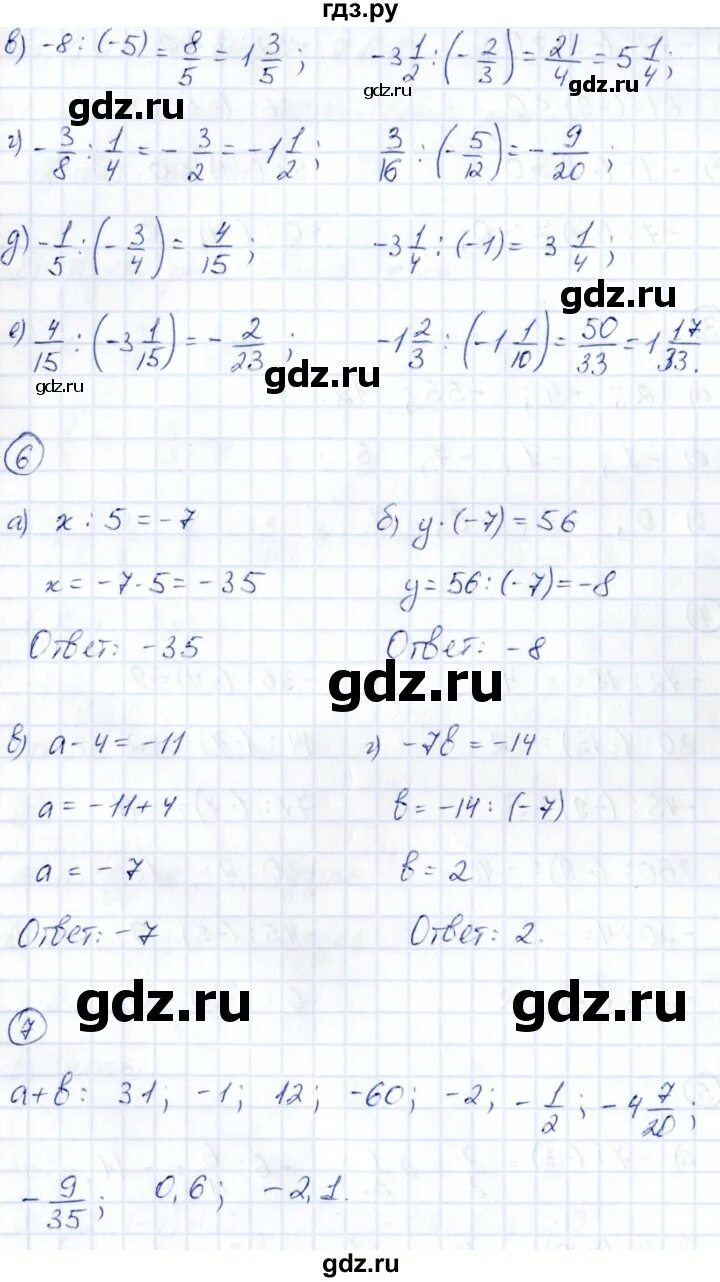 гдз.ру
в) -8 : (-5) = 8/5 = 1 3/5 ; -3 1/2 : (- 2/3) = 21/4 = 5 1/4 ;
gdz.ru gdz.ru gdz.ru
г) - 3/8 : 1/4 = - 3/2 = -1 1/2 ; 3/16 : (- 5/12) = - 9/20 ;
gdz.ru
д) - 1/5 : (- 3/4) = 4/15 ; -3 1/4 : (-1) = 3 1/4 ;
gdz.ru
е) 4/15 : (-3 1/15) = - 2/23 ; -1 2/3 : (-1 1/10) = 50/33 = 1 17/33.
gdz.ru gdz.ru gdz.ru
6
а) x : 5 = -7 б) y · (-7) = 56
x = -7 · 5 = -35 y = 56 : (-7) = -8
Ответ: -35 Ответ: -8
gdz.ru
в) a - 4 = -11 г) -7в = -14
a = -11 + 4 в = -14 : (-7)
a = -7 в = 2
Ответ: -7 Ответ: 2.
gdz.ru gdz.ru
7
a+в: 31; -1; 12; -60; -2; - 1/2 ; -4 7/20 ;
- 9/35 ; 0,6; -2,1.
gdz.ru